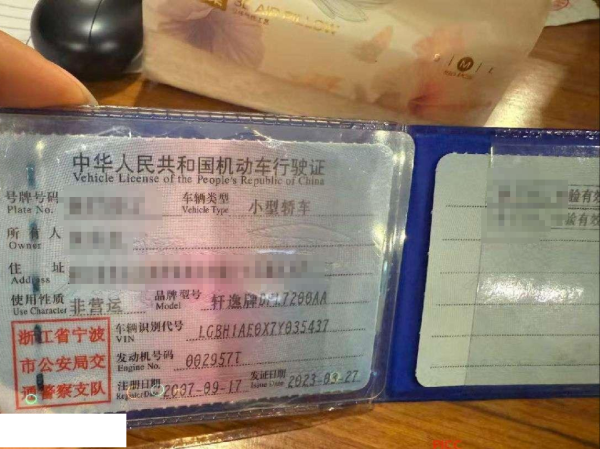 3L AIR PILLOW
中华人民共和国机动车行驶证
Vehicle License of the People's Republic of China
号牌号码
Plate No.
车辆类型
Vehicle Type
小型轿车
所有人
Owner
住址
Address
使用性质
Use Character
非营运
品牌型号
Model
轩逸牌DFL7200AA
车辆识别代号
VIN
LGBH1AE0X7Y035437
发动机号码
Engine No.
002957T
注册日期
Register Date
2007-09-17
发证日期
Issue Date
2023-09-27
浙江省宁波
市公安局交
通警察支队
验有效
验有效